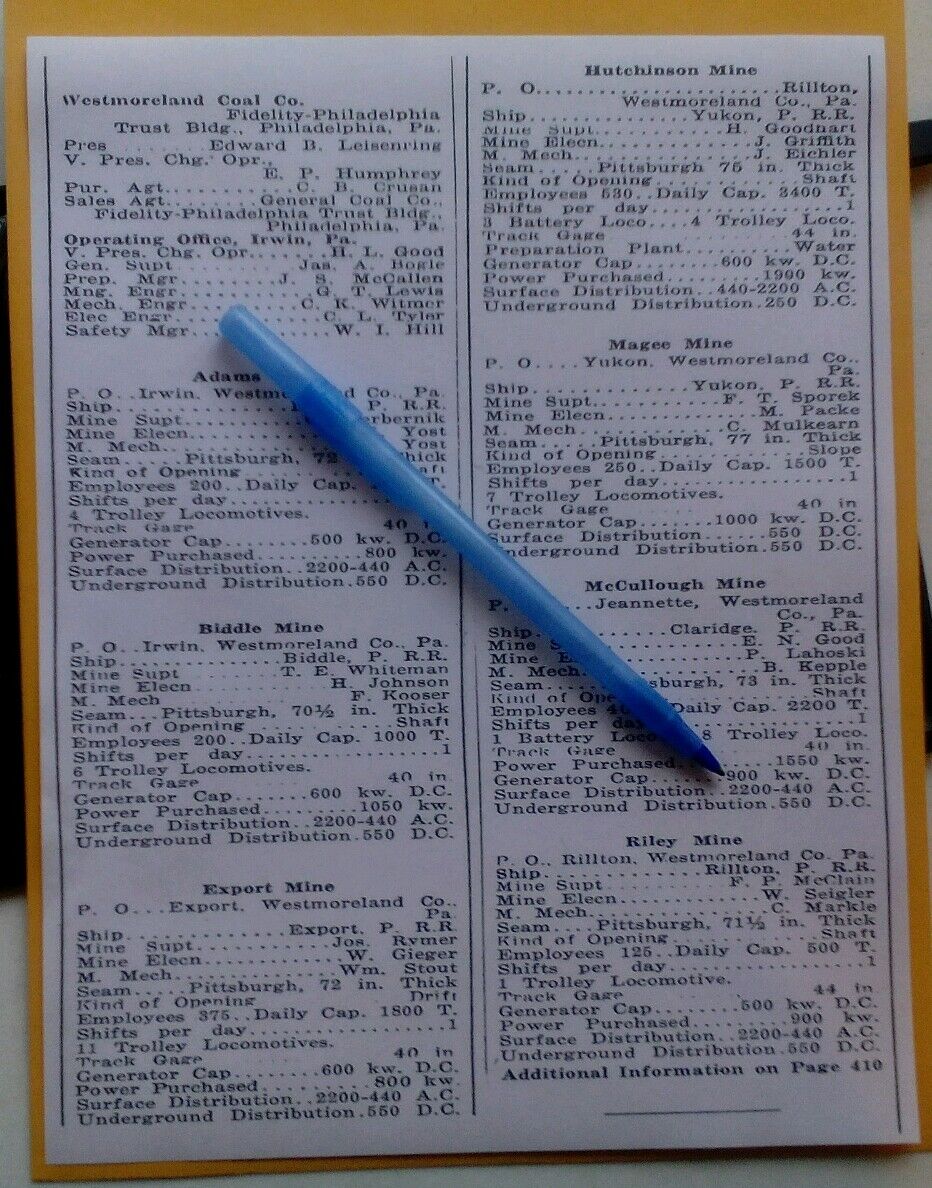 Westmoreland Coal Co.
Fidelity-Philadelphia
Trust Bldg., Philadelphia, Pa.
Pres ..... Edward B. Leisenring
V. Pres. Chg. Opr.,
E. P. Humphrey
Pur. Agt.......... C. B. Crusan
Sales Agt........General Coal Co.,
Fidelity-Philadelphia Trust Bldg.,
Philadelphia, Pa.
Operating Office, Irwin, Pa.
V. Pres. Chg. Opr......H. L. Good
Gen. Supt ........ Jas. A. Bogle
Prep. Mgr.......J. S. McCallen
Mng. Engr..........G. T. Lewis
Mech. Engr........C. K. Witmer
Elec Engr.......... C. L. Tyler
Safety Mgr..........W. I. Hill
Adams
P. O..Irwin, Co., Pa.
Ship........ P. R.R.
Mine Supt........
Mine Elecn....... Yost
M. Mech........ Yost
Seam....Pittsburgh, 72
Kind of Opening
Employees 200..Daily Cap.
Shifts per day........
4 Trolley Locomotives.
Track Gage 40
Generator Cap......500 kw. D.C.
Power Purchased.........800 kw.
Surface Distribution..2200-440 A.C.
Underground Distribution.550 D.C.
Biddle Mine
P. O..Irwin, Westmoreland Co., Pa.
Ship.............Biddle, P. R.R.
Mine Supt ..... T. E. Whiteman
Mine Elecn.........H. Johnson
M. Mech ........... F. Kooser
Seam...Pittsburgh, 70½ in. Thick
Kind of Opening ........... Shaft
Employees 200..Daily Cap. 1000 T.
Shifts per day...............1
6 Trolley Locomotives.
Track Gage 40 in.
Generator Cap......600 kw. D.C.
Power Purchased........1050 kw.
Surface Distribution..2200-440 A.C.
Underground Distribution.550 D.C.
Export Mine
P. O...Export, Westmoreland Co.,
Pa.
Ship.............Export, P. R.R.
Mine Supt..........Jos. Rymer
Mine Elecn..........W. Gieger
M. Mech............Wm. Stout
Seam....Pittsburgh, 72 in. Thick
Kind of Opening Drift
Employees 375..Daily Cap. 1800 T.
Shifts per day...............1
11 Trolley Locomotives.
Track Gage 40 in
Generator Cap......600 kw. D.C.
Power Purchased.........800 kw.
Surface Distribution..2200-440 A.C.
Underground Distribution.550 D.C.
Hutchinson Mine
P. O.....................Rillton,
Westmoreland Co., Pa.
Ship............Yukon, P. R.R.
Mine Supt.......H. Goodhart
Mine Elecn..........J. Griffith
M. Mech............J. Eichler
Seam....Pittsburgh 75 in. Thick
Kind of Opening............Shaft
Employees 530..Daily Cap. 3400 T.
Shifts per day...............1
3 Battery Loco....4 Trolley Loco.
Track Gage ........... 44 in.
Preparation Plant..........Water
Generator Cap......600 kw. D.C.
Power Purchased........1900 kw.
Surface Distribution...440-2200 A.C.
Underground Distribution.250 D.C.
Magee Mine
P. O....Yukon, Westmoreland Co.,
Pa.
Ship............Yukon, P. R.R.
Mine Supt.......F. T. Sporek
Mine Elecn.........M. Packe
M. Mech..........C. Mulkearn
Seam....Pittsburgh, 77 in. Thick
Kind of Opening............Slope
Employees 250..Daily Cap. 1500 T.
Shifts per day...............1
7 Trolley Locomotives.
Track Gage 40 in
Generator Cap......1000 kw. D.C.
Surface Distribution......550 D.C.
Underground Distribution.550 D.C.
McCullough Mine
P. ...Jeannette, Westmoreland
Co., Pa.
Ship..........Claridge, P. R.R.
Mine E. N. Good
Mine P. Lahoski
M. Mech. B. Kepple
Seam 73 in. Thick
Kind of Shaft
Employees Daily Cap. 2200 T.
Shifts per 1
1 Battery 8 Trolley Loco.
Track Gage 40 in.
Power Purchased........1550 kw.
Generator Cap......900 kw. D.C.
Surface Distribution..2200-440 A.C.
Underground Distribution.550 D.C.
Riley Mine
P. O., Rillton, Westmoreland Co. Pa.
Ship............Rillton, P. R.R.
Mine Supt ........ F. P. McClain
Mine Elecn.........W. Seigler
M. Mech...........C. Markle
Seam...Pittsburgh, 71½ in. Thick
Kind of Opening............Shaft
Employees 125..Daily Cap. 500 T.
Shifts per day...............1
1 Trolley Locomotive.
Track Gage 44 in.
Generator Cap......500 kw. D.C.
Power Purchased.........900 kw.
Surface Distribution..2200-440 A.C.
Underground Distribution.550 D.C.
Additional Information on Page 410